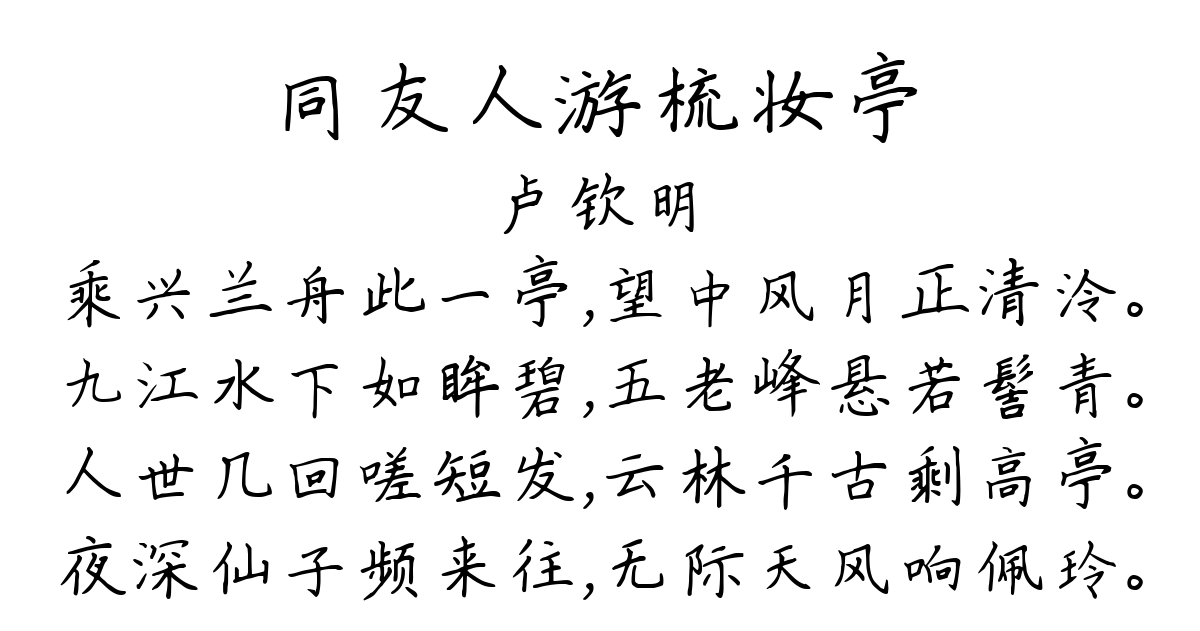 同友人游梳妆亭
卢钦明
乘兴兰舟此一亭,望中风月正清泠。
九江水下如眸碧,五老峰悬若髻青。
人世几回嗟短发,云林千古剩高亭。
夜深仙子频来往,无际天风响佩玲。